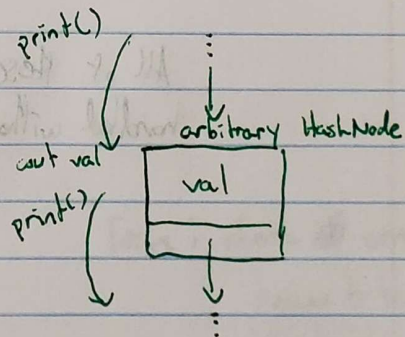 print()
arbitrary HashNode
cout val
val
print()